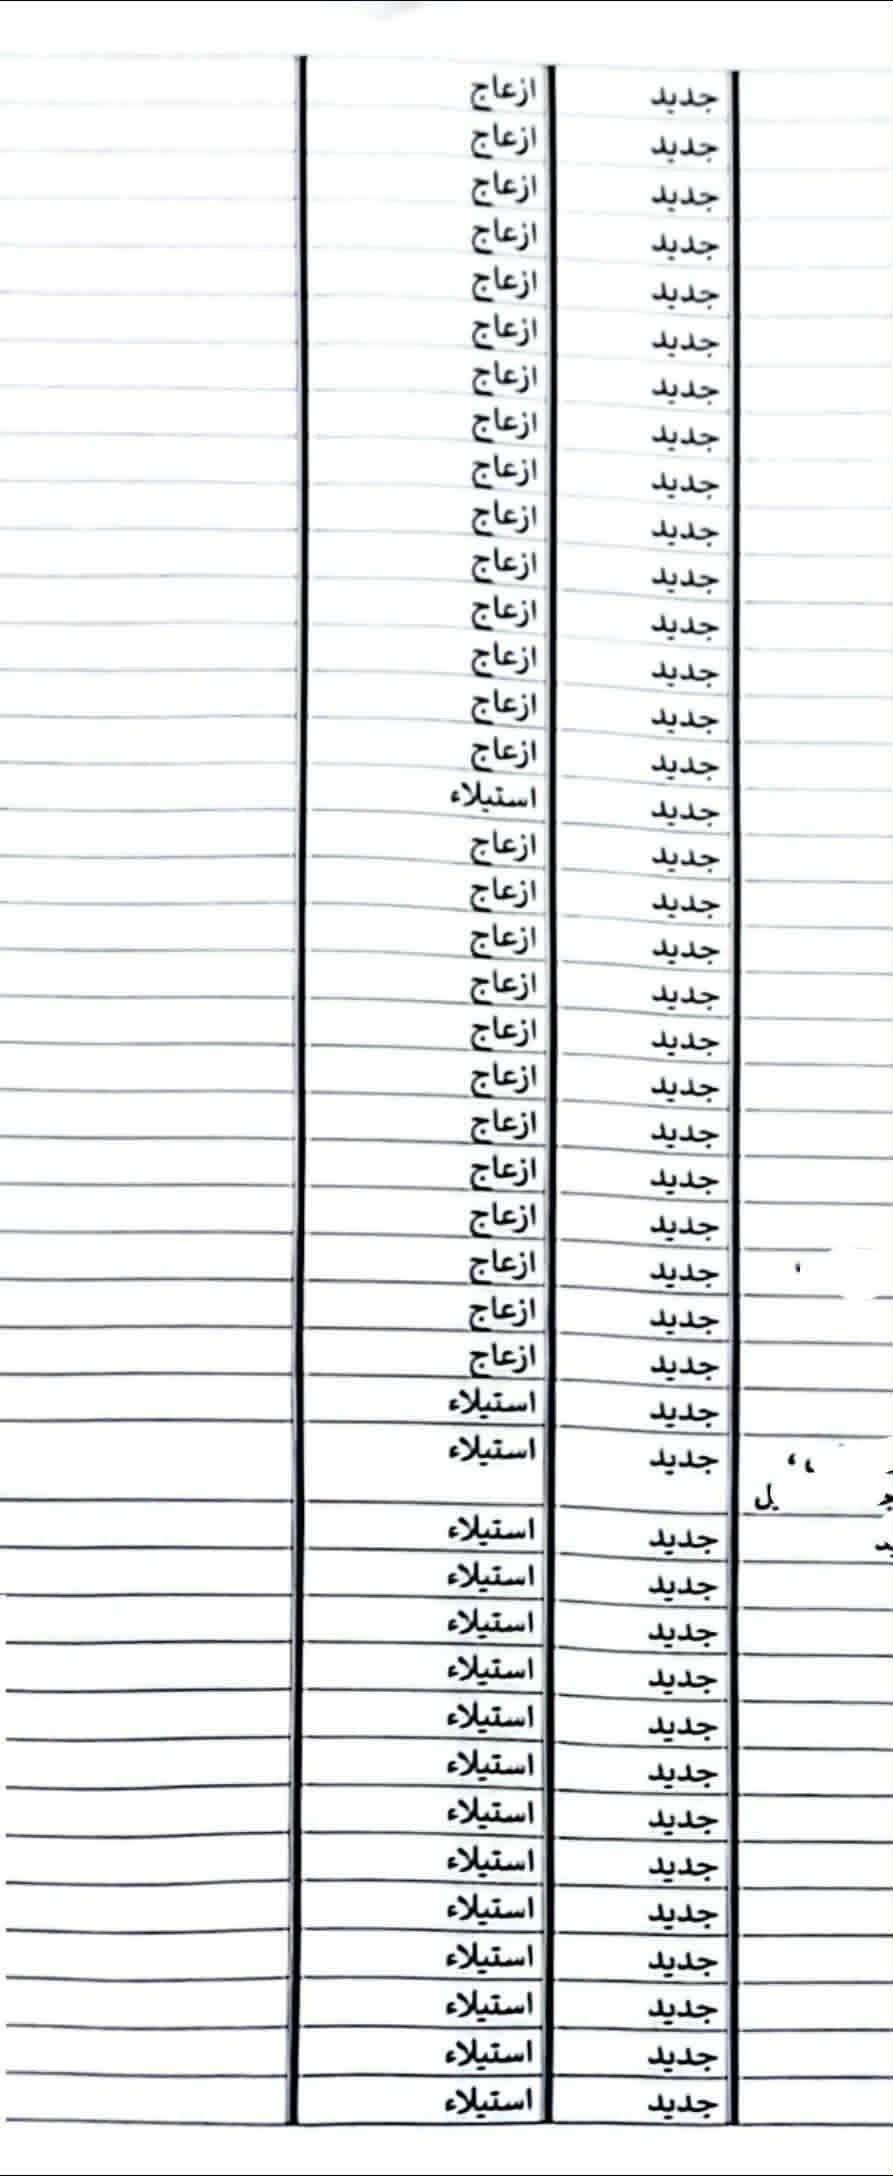 جديد ازعاج
جديد ازعاج
جديد ازعاج
جديد ازعاج
جديد ازعاج
جديد ازعاج
جديد ازعاج
جديد ازعاج
جديد ازعاج
جديد ازعاج
جديد ازعاج
جديد ازعاج
جديد ازعاج
جديد ازعاج
جديد ازعاج
جديد استيلاء
جديد ازعاج
جديد ازعاج
جديد ازعاج
جديد ازعاج
جديد ازعاج
جديد ازعاج
جديد ازعاج
جديد ازعاج
جديد ازعاج
جديد ازعاج
جديد ازعاج
جديد ازعاج
جديد استيلاء
جديد استيلاء
جديد استيلاء
جديد استيلاء
جديد استيلاء
جديد استيلاء
جديد استيلاء
جديد استيلاء
جديد استيلاء
جديد استيلاء
جديد استيلاء
جديد استيلاء
جديد استيلاء
جديد استيلاء
جديد استيلاء